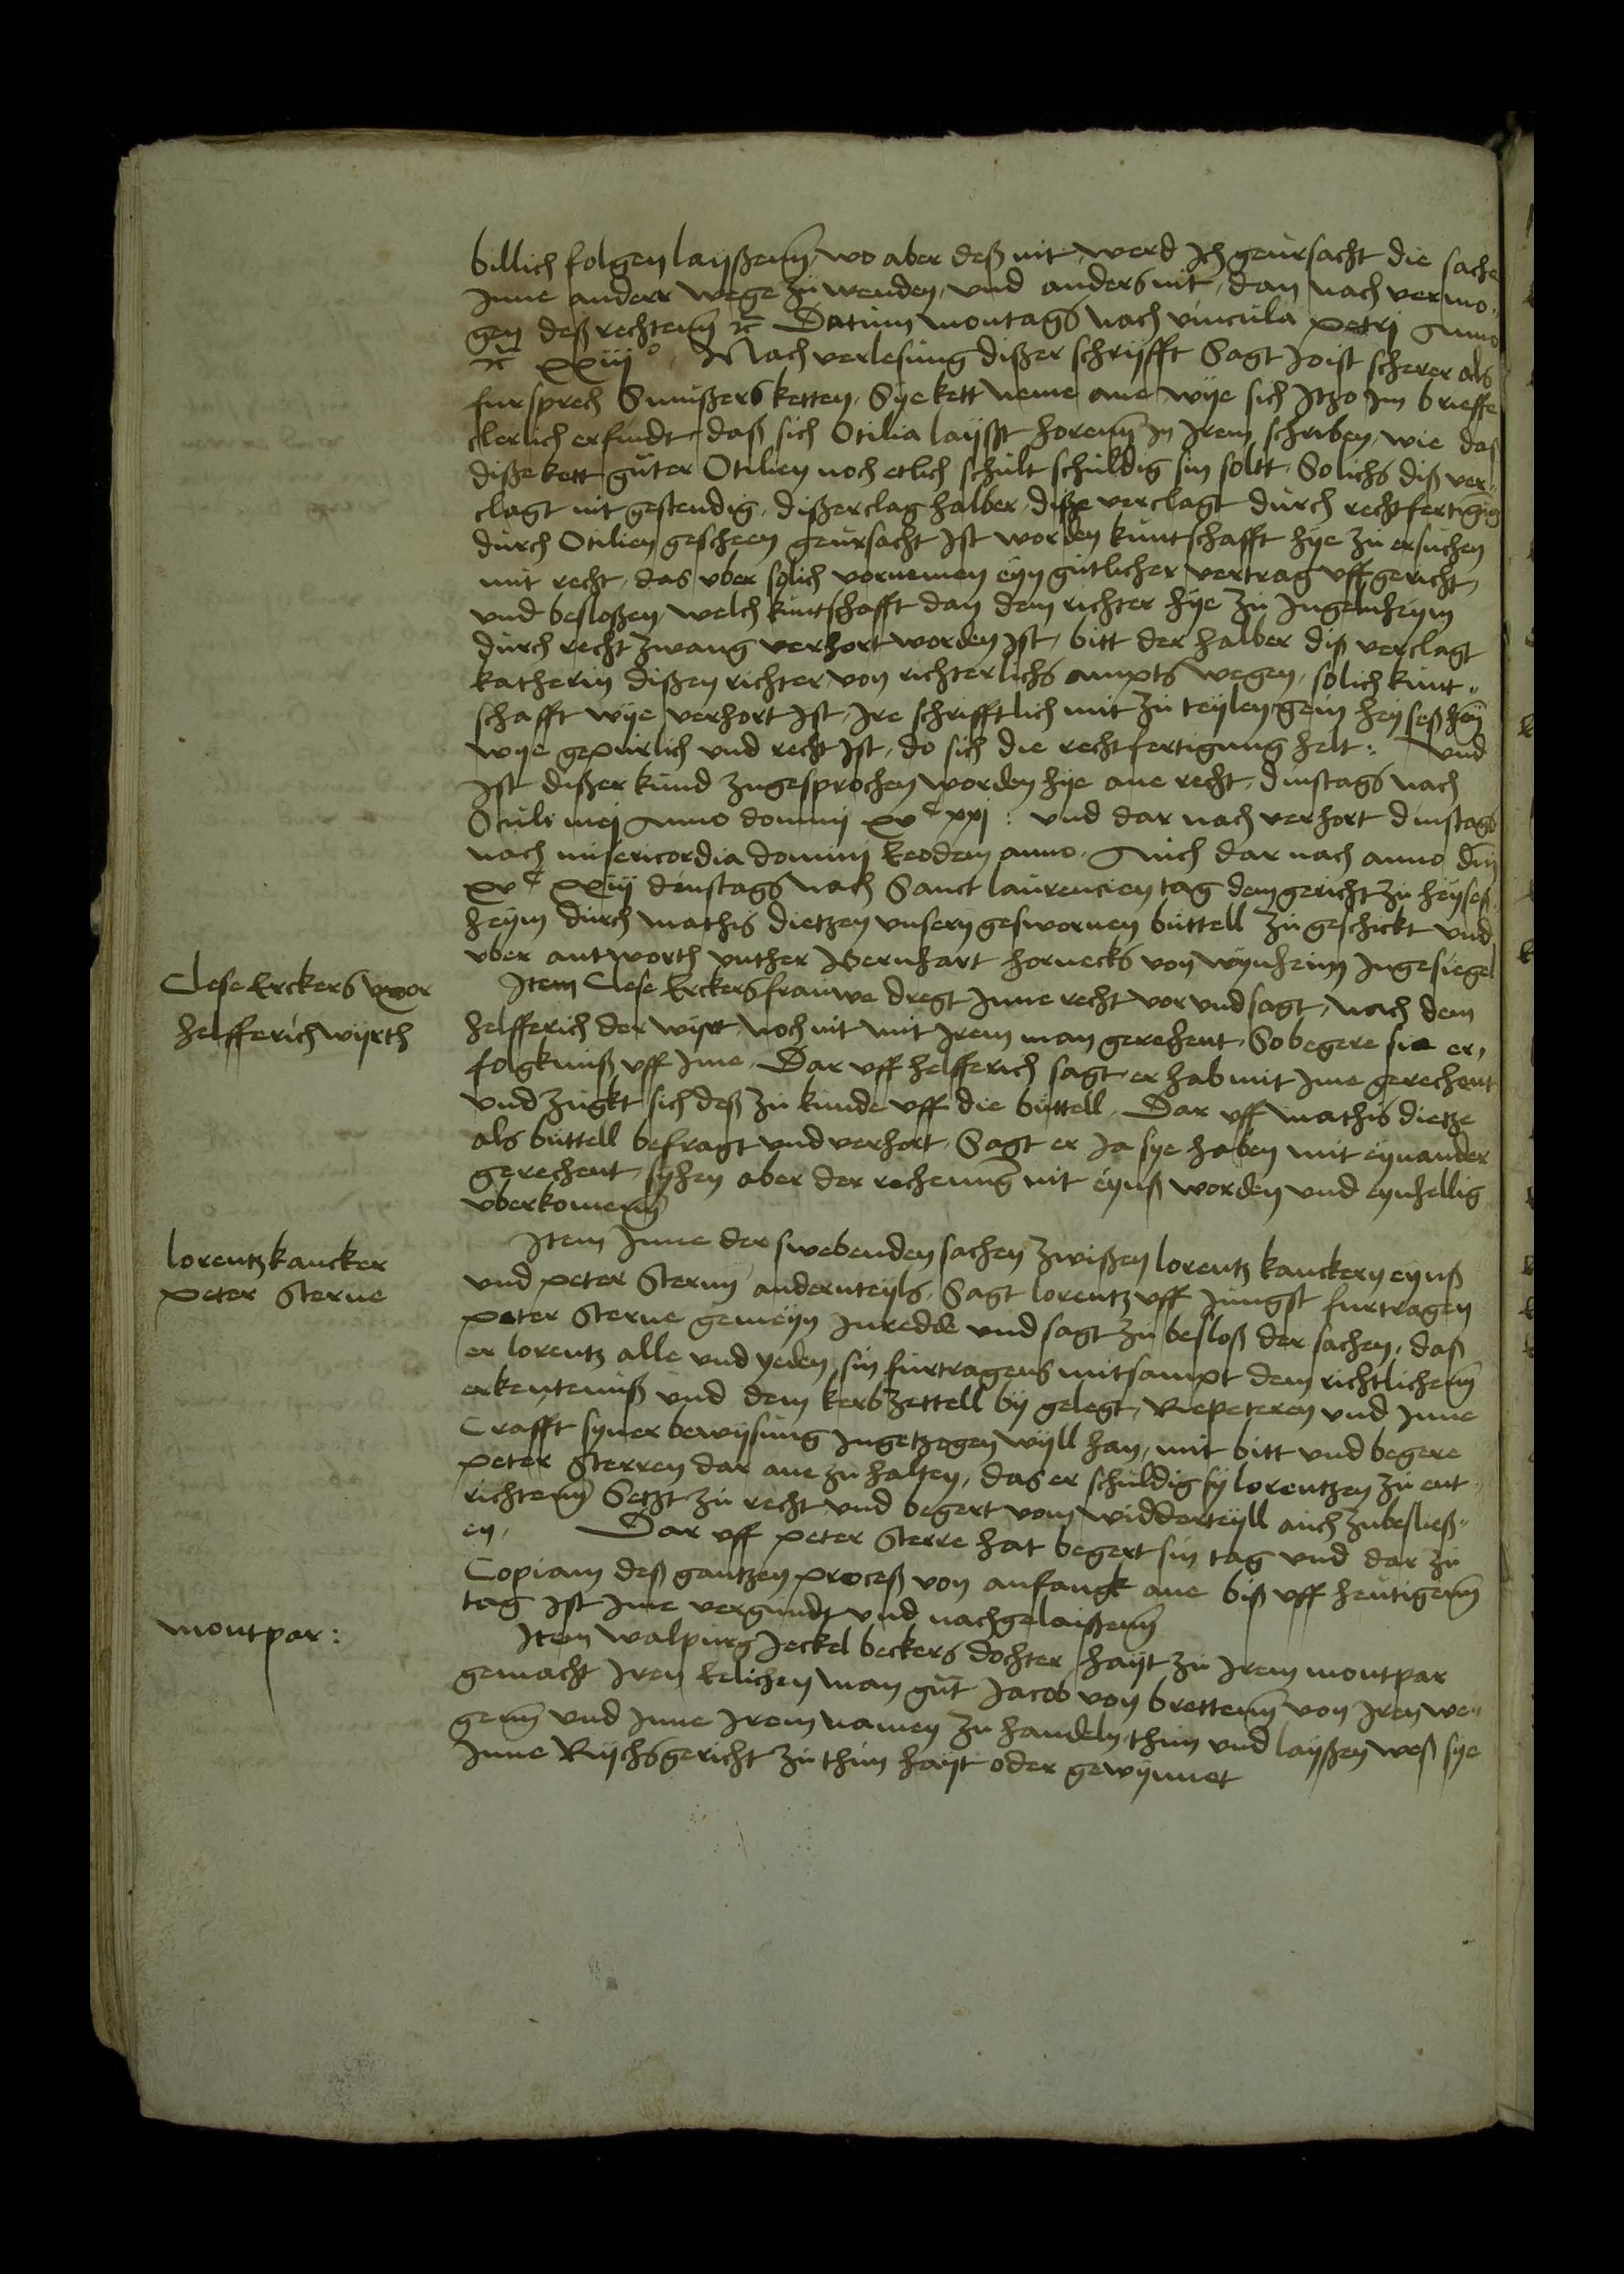 billich folgen laÿßenn, wo aber deß nit, werd Ich geursacht die sache
Inne anderr wege zu wenden, vnd anders nit, dan nach vermo„
gen deß rechtenn ꝛc Datum montags nach vincula petrj Anno
ꝛc xxiij° Nach verlesung dißer schrÿfft Sagt Joist scherer als
fursprech Smußers ketten, Sÿe kett neme ane wÿe sich Itzo Im brieffe
clerlich erfindt, daß sich Otilia laÿßt horenn In Irem schriben, wie daß
diße kett guter Otilien noch etlich schult schuldig sin soltt, Solichs diß ver„
clagt nit gestendig, dißer clag halber, diße verclagt durch rechtfertigung
durch Otilien gescheen geursacht Ist worden kuntschafft hÿe zu ersuchen
mit recht, das vber solich vornemen eÿn gutlicher vertrag vffgericht,
vnd besloßen, welch kuntschafft dan dem richter hÿe zu Ingelnheym
durch recht zwang verhort worden Ist, bitt der halber diß verclagt
katherin dißen richter, von richterlichs ampts wegen, solich kunt„
schafft wÿe verhort Ist, Ire schrifftlich mit zu teÿlen gein heÿseßheÿm
wÿe gepurlich vnd recht Ist, do sich die rechtfertigung helt: vnd
Ist dißer kund zugesprochen worden hÿe ane recht, dinstags nach
Oculi mei Anno dominj xvᶜ xxj: vnd dar nach verhort dinstags
nach misericordia dominj Eeodem anno, Auch dar nach anno dnj
xvᶜ xxiij dinstags nach Sanct laurencien tag dem gericht zu heÿseß„
heÿm durch mathis dietzen vnsern geswornen buttell zu geschickt vnd
vber antworth vnther Bernhart hornecks von wÿnheim Ingesiegel
Clese Erckers vxor
helfferich wÿrth
Item Clese Erckers frauwe dregt Inne recht vor vnd sagt, nach dem
helfferich der wirt, noch nit mit Irem man gerechent, So begere sie er„
folgkniß vff Ine, Dar vff helfferich sagt, er hab mit Ime gerechent
vnd zugkt sich deß zu kunde vff die buttell, Dar vff mathis dietze
als buttell befragt vnd verhort, Sagt er Ja sye haben mit eÿnander
gerechent, sÿhen aber der rechenung nit eÿnß worden vnd eÿnhellig
vberkomenn
lorentz kancker
peter Sterne
Item Inne der swebenden sachen zwißen lorentz kanckern eynß
vnd peter Sternn andernteÿls, Sagt lorentz vff Jungst furtragen
peter Sterne gemeÿn Inredde vnd sagt zu besloß der sachen, daß
er lorentz alle vnd yeden sin furtragens mitsampt dem richtlichenn
erkenteniß vnd dem kerbzettell bÿ gelegt, Repeteren vnd Inne
Crafft sÿner bewÿsung Ingetzogen wÿll han, mit bitt vnd begere
peter Sterren dar ane zu halten, das er schuldig sÿ lorentzen zu ent„
richtenn Setzt zu recht vnd begert vom widderteÿll auch zubesließ„
en, Dar vff peter Sterre hat begert sin tag vnd dar zu
Copiam deß gantzen proceß von anfangk ane biß vff heutigenn
tag Ist Ime vergundt vnd nachgelaißenn
montpar:
Item walpurg Jeckel beckers dochter haÿt zu Irem montpar
gemacht Iren Eelichen man gut Jacob von brettenn von Iren we„
genn vnd Inne Irem namen zu handeln, thun vnd laÿßen weß sÿe
Inne Rÿchsgericht zu thun haÿt oder gewÿnnet